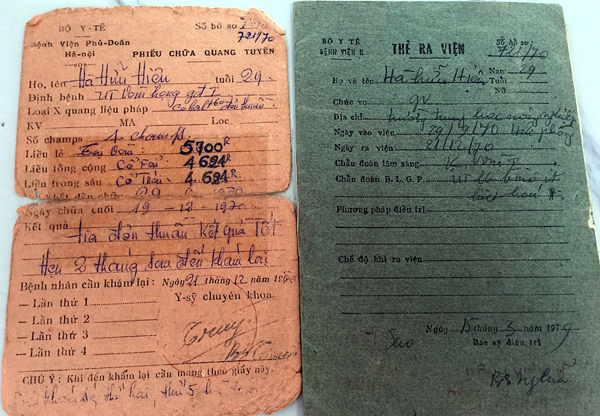 BỘ Y-TẾ
Bệnh Viện Phủ-Doãn
Hà-nội
Số hồ sơ
721/70
PHIẾU CHỮA QUANG TUYẾN
Họ, tên Hà Hữu Hiền tuổi 29
Định bệnh UT vòm họng gđ I
Loại X quang liệu pháp Cobalt 60 đơn thuần
KV MA Loc
Số champs 4 champs
Liền lẻ Tại vòm: 5700R
Liền tổng cộng Cổ Fải: 4694R
Liền trong sâu Cổ Trái: 4.694R
Ngày chữa cuối 19 - 12 - 1970
Kết quả
Tia đơn thuần kết quả Tốt
Hẹn 2 tháng sau đến khám lại
Bệnh nhân cần khám lại : Ngày 21 tháng 12 năm 1970
— Lần thứ 1
— Lần thứ 2
— Lần thứ 3
— Lần thứ 4
Y-sỹ chuyên khoa
CHÚ Ý : Khi đến khám lại cần mang theo giấy này.
BỘ Y TẾ
BỆNH VIỆN K
THẺ RA VIỆN
Số hồ sơ:
721/70
Họ và tên Hà Hữu Hiền Nam 29
Nữ
Chức vụ gv
Địa chỉ trường trung học nông nghiệp
Ngày vào viện 29/9/70 Hải phòng
Ngày ra viện 21/12/70
Chẩn đoán lâm sàng K vòm I
Chẩn đoán B. L. G. P. UT
biệt hoá
Phương pháp điều trị
Chế độ khi ra viện
Ngày 15 tháng 3 năm 1979
Sao
Bác sỹ điều trị
BS Nghĩa